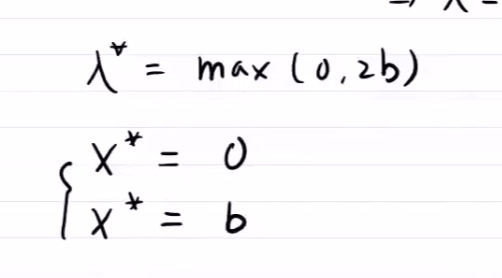 λ* = max (0, 2b)
x* = 0
x* = b